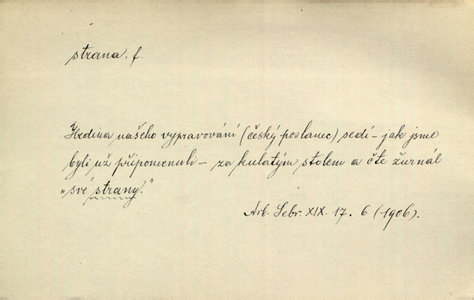 strana, f.
Hrdina našeho vypravování (český poslanec) sedí – jak jsme
byli už připomenuli – za kulatým stolem a čte žurnál
„své strany."
Arb. Sebr. XIX. 17. 6 (–1906).